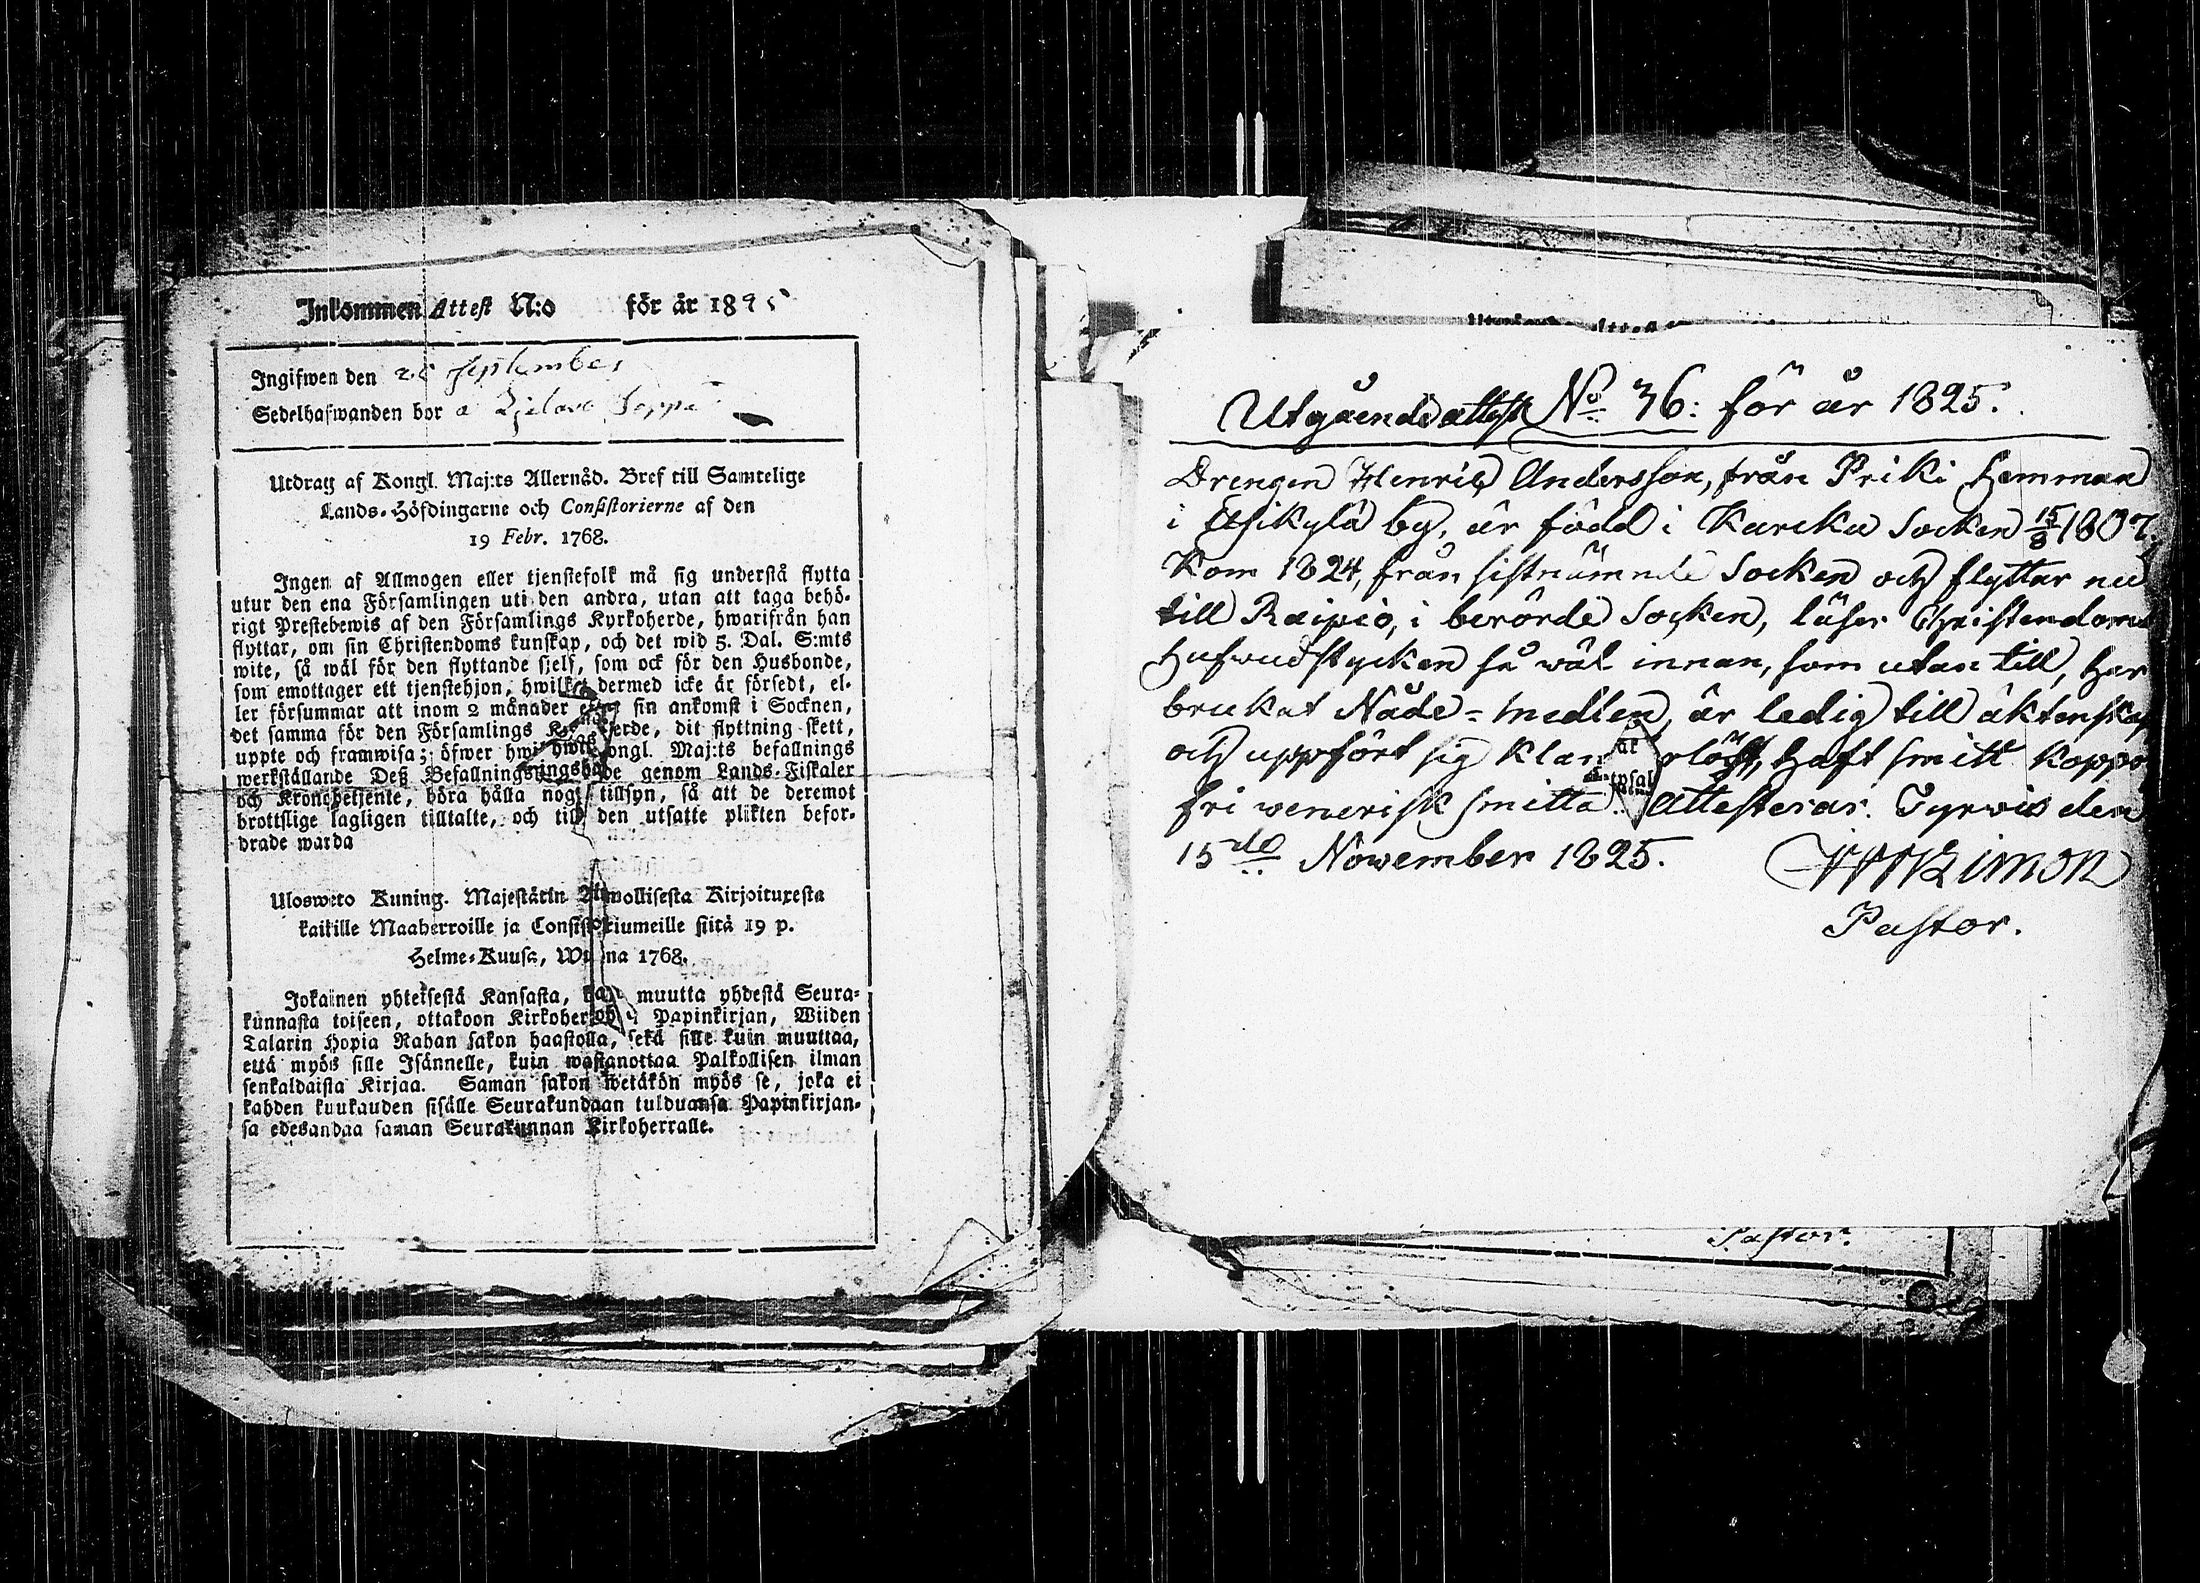 Inkommen Attest N:o för år 1825
Ingifwen den September
Sedelhafwanden bor
Utdrag af Kongl. Maj:ts Allernåd. Bref till Samtelige
Lands-Höfdingarne och Consistorierne af den
19 Febr. 1768.
Ingen af Allmogen eller tjenstefolk må sig understå flytta
utur den ena Församlingen uti den andra, utan att taga behö-
rigt Prestebewis af den Församlings Kyrkoherde, hwarifrån han
flyttar, om sin Christendoms kunskap, och det wid 5. Dal. S:mts
wite, så wäl för den flyttande sjelf, som ock för den Husbonde,
som emottager ett tjenstehjon, hwilket dermed icke är försedt, el-
ler försummar att inom 2 månader sin ankomst i Socknen,
det samma för den Församlings dit flyttning skett,
uppte och framwisa; öfwer Kongl. Maj:ts befallnings
werkställande Deß genom Lands-Fiskaler
och Kronebetjente, böra hålla noga tillsyn, så att de deremot
brottslige lagligen tilltalte, och till den utsatte plikten befor-
drade warda
Uloswето Kuning. Majestätin Kirjoituxesta
kaikille Maaherroille ja Consistoriumeille siitä 19 p.
Helme-Kuusa, Wuonna 1768.
Jokainen yhteisestä Kansasta, muutta yhdestä Seura-
kunnasta toiseen, ottakoon Papinkirjan, Wiiden
Talarin Hopia Rahan sakon haastolla, sekä sille kuin muuttaa,
että myös sille Isännelle, kuin wastanottaa Palkollisen ilman
senkaldaista Kirjaa. Saman sakon wetäkön myös se, joka ei
kahden kuukauden sisälle Seurakundaan tulduansa Papinkirjan-
sa edesandaa saman Seurakunnan Kirkoherralle.
Utgående attest No 36: för år 1825.
Drengen Henric Andersson, från Priki Hemman
i by, är född i Kareku Socken 15/8 1807.
Kom 1824, från sistnämnde Socken och flyttar nu
till Raipio, i berörde Socken, läser Christendoms
Hufwudstycken så wäl innan, som utan till, har
brukat Nåde-medlen, är ledig till äktenskap
och uppfört sig haft smitt koppor
fri wenerisk smitta attesterar. Tyrwis den
15de November 1825.
Pastor.
Pastor.